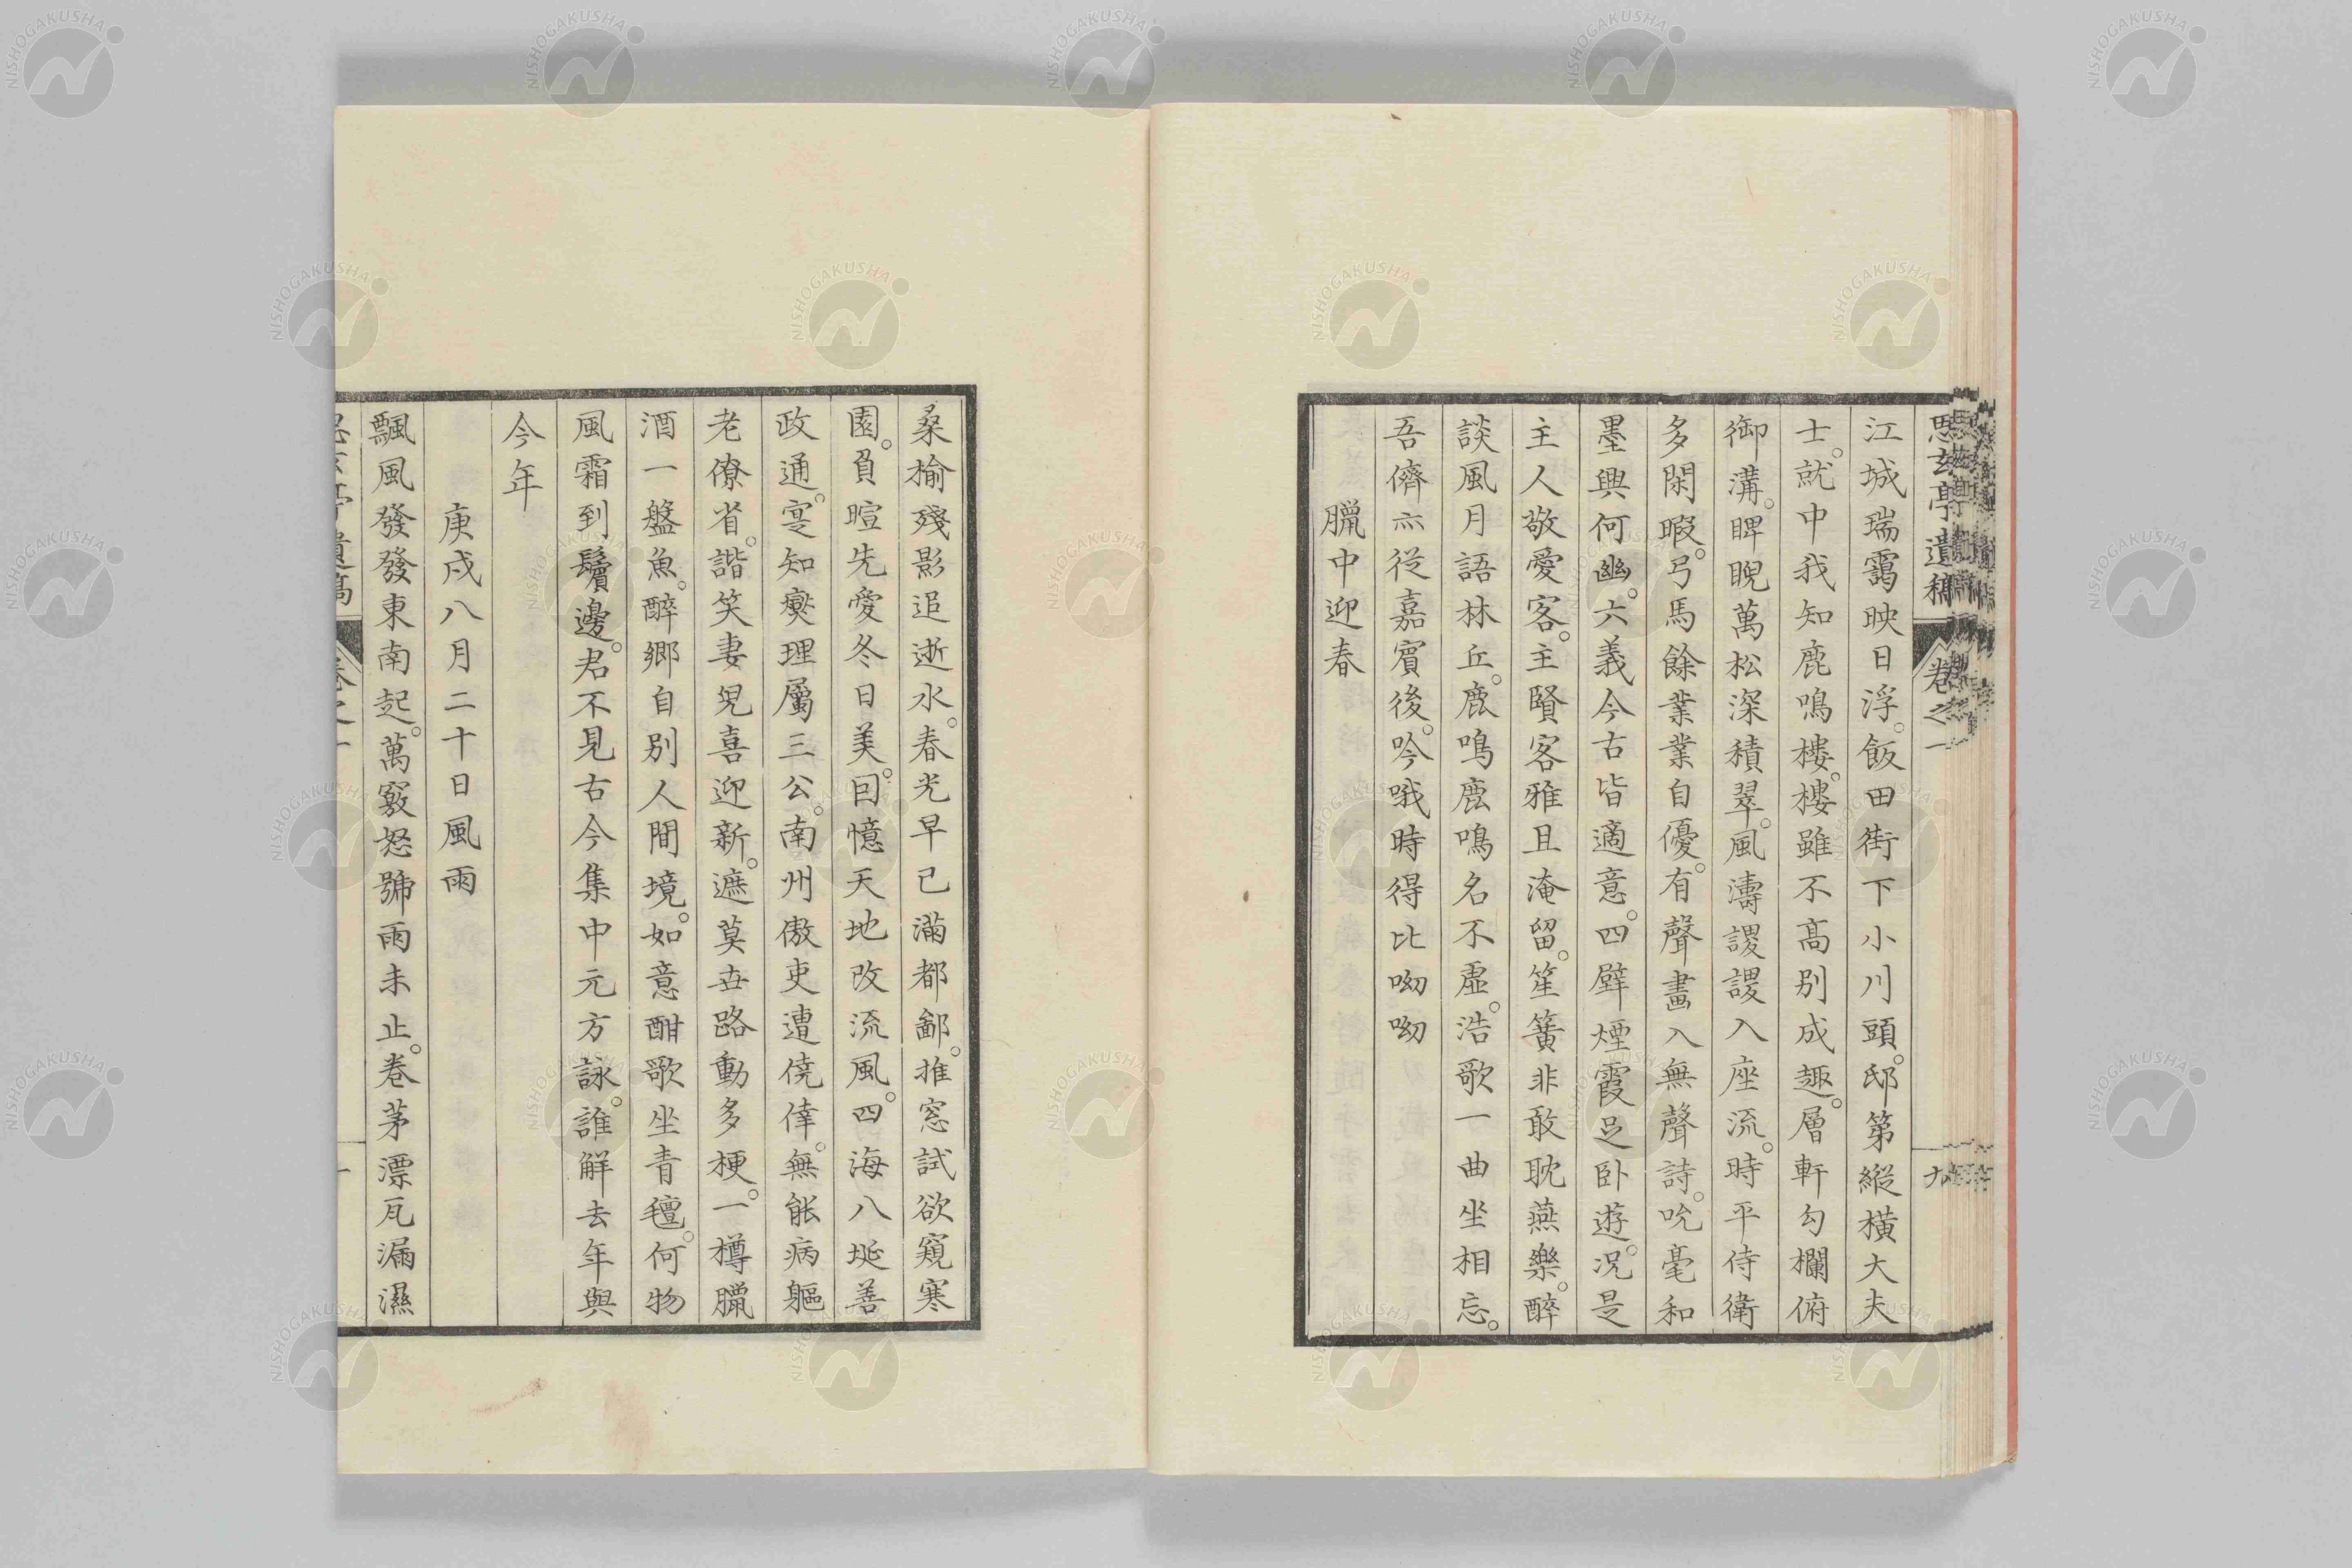 思玄亭遺稿 卷之一 九
江城瑞靄映日浮。飯田街下小川頭。邸第縱橫大夫
士。就中我知鹿鳴樓。樓雖不高別成趣。層軒勾欄俯
御溝。睥睨萬松深積翠。風濤謖謖入座流。時平侍衛
多閑暇。弓馬餘業業自優。有聲畫入無聲詩。吮毫和
墨興何幽。六義今古皆適意。四壁煙霞足臥遊。況是
主人敬愛客。主賢客雅且淹留。笙簧非敢耽燕樂。醉
談風月語林丘。鹿鳴鹿鳴名不虛。浩歌一曲坐相忘。
吾儕亦從嘉賓後。吟哦時得比呦呦
臘中迎春
桑榆殘影追逝水。春光早已滿都鄙。推窓試欲窺寒
園。負暄先愛冬日美。回憶天地改流風。四海八埏善
政通。寔知爕理屬三公。南州傲吏遭僥倖。無能病軀
老僚省。諧笑妻兒喜迎新。遮莫世路動多梗。一樽臘
酒一盤魚。醉鄉自別人間境。如意酣歌坐青氊。何物
風霜到鬢邊。君不見古今集中元方詠。誰解去年與
今年
庚戌八月二十日風雨
飄風發發東南起。萬竅怒號雨未止。卷茅漂瓦漏濕